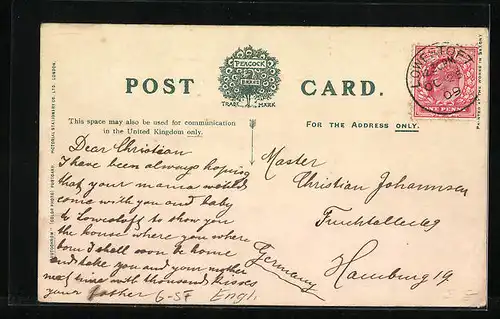 POST CARD.
PEACOCK
BRAND
TRADE MARK
This space may also be used for communication
in the United Kingdom only.
FOR THE ADDRESS ONLY.
LOWESTOFT
09
ONE PENNY
Dear Christian
I have been always hoping
that your mama would
come with you and baby
to Lowestoft to show you
the house where you where
born I shall soon be home
and take you and your mother
next time with thousand kisses
your father
Master
Christian Johannsen
Fruchtallee 69
Hamburg 19
Germany
6-57 Engl
"PEACOCK BRAND" POSTCARD. PICTORIAL STATIONERY CO. LTD. LONDON.